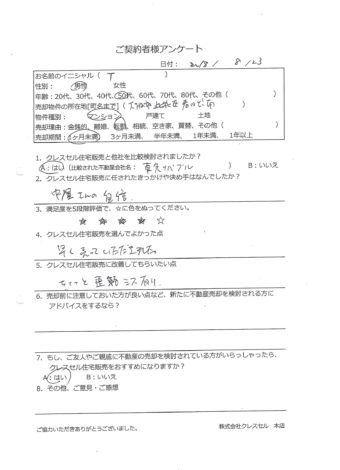 ご契約者様アンケート
日付: 2018 / 8 / 23
お名前のイニシャル ( T )
性別: 男性 女性
年齢: 20代、30代、40代、50代、60代、70代、80代、その他 ( )
売却物件の所在地[町名まで] (
物件種別: マンション 戸建て 土地
売却理由: 金銭的、離婚、転勤、相続、空き家、買替、その他 ( )
売却期間: 1ヶ月未満 3ヶ月未満、 半年未満、 1年未満、 1年以上
1. クレスセル住宅販売と他社を比較検討されましたか?
A: はい (比較された不動産会社名: 東急リバブル ) B: いいえ
2. クレスセル住宅販売に任されたきっかけや決め手はなんでしたか?
さんの
3. 満足度を5段階評価で、☆に色をぬってください。
★ ★ ★ ★ ☆
4. クレスセル住宅販売を選んでよかった点
早く売っていただきました。
5. クレスセル住宅販売に改善してもらいたい点
ちょっと ミスあり
6. 売却前に注意しておいた方が良い点など、新たに不動産売却を検討される方に
アドバイスをするなら?
7. もし、ご友人やご親戚に不動産の売却を検討されている方がいらっしゃったら、
クレスセル住宅販売をおすすめになりますか?
A: はい B: いいえ
8. その他、ご意見・ご感想
ご協力いただきありがとうございました。 株式会社クレスセル 本店